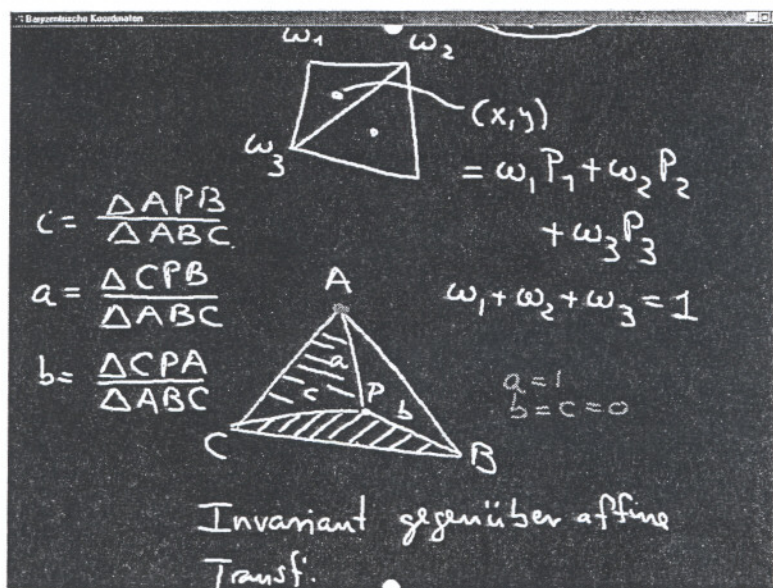 Baryzentrische Koordinaten
ω₁ ω₂
(x,y)
ω₃
= ω₁P₁ + ω₂P₂
+ ω₃P₃
ω₁ + ω₂ + ω₃ = 1
c = ΔAPB / ΔABC
a = ΔCPB / ΔABC
b = ΔCPA / ΔABC
A
a
c P b
C B
a = 1
b = c = 0
Invariant gegenüber affine
Transf.